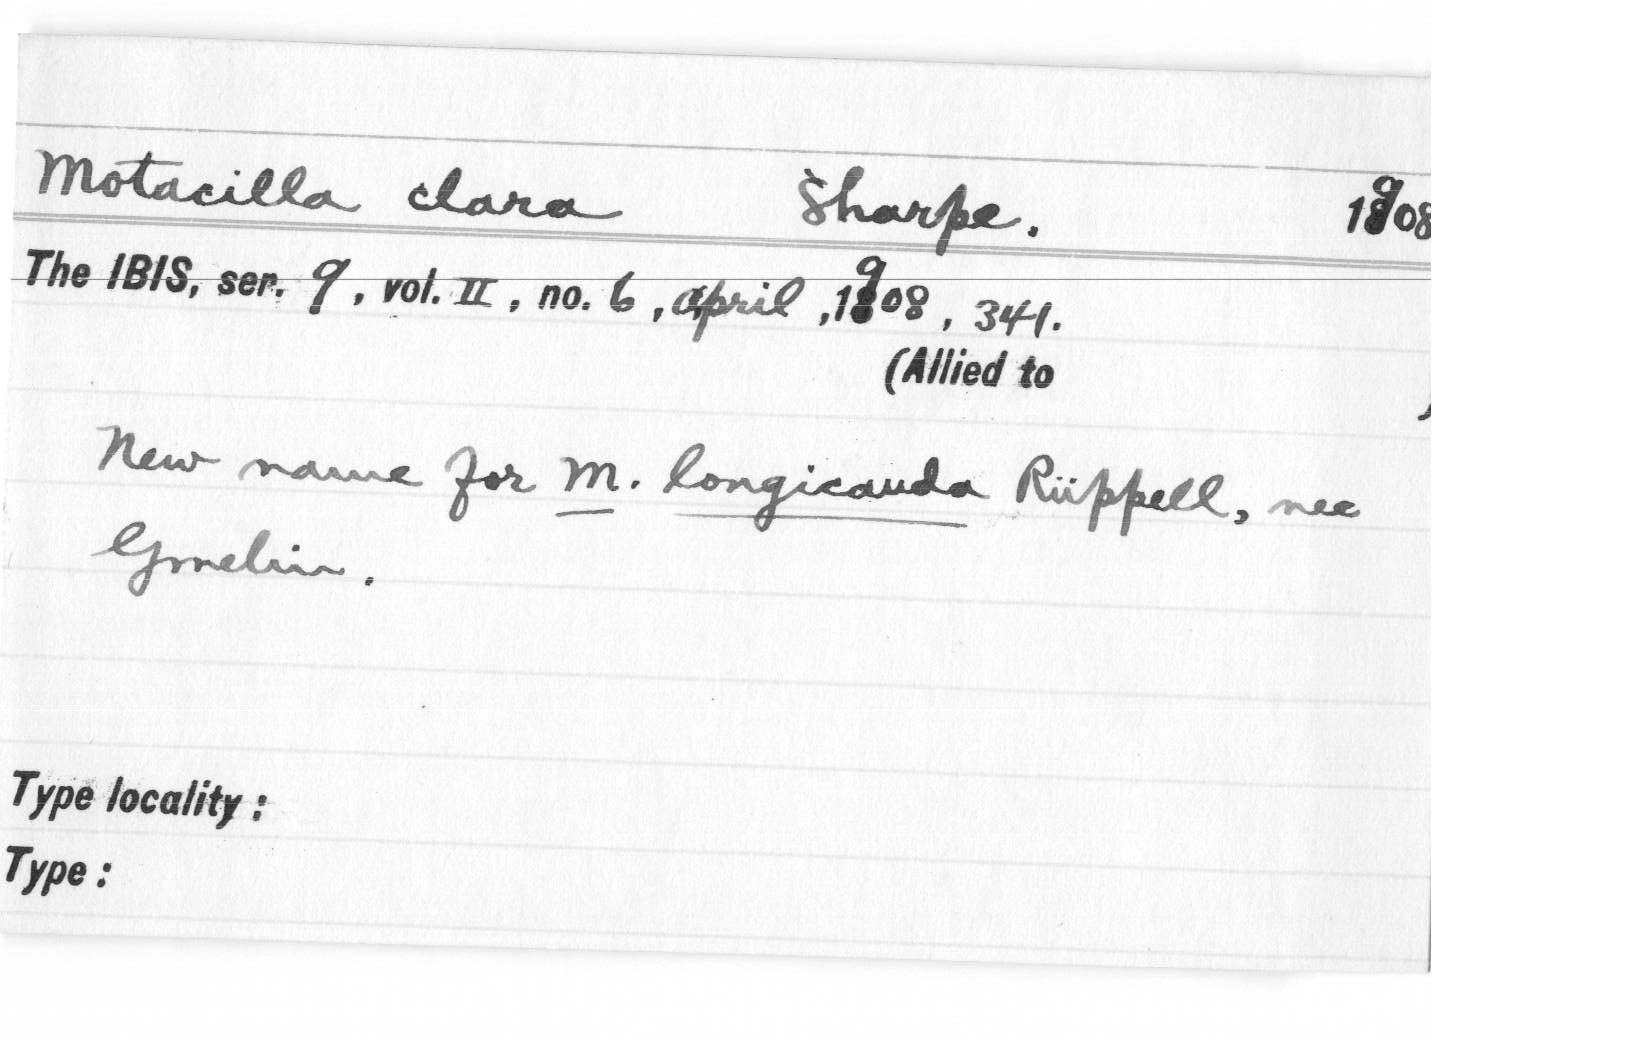 Motacilla clara Sharpe. 1908
The IBIS, ser. 9, vol. II, no. 6, april, 1908, 341.
(Allied to )
New name for M. longicauda Rüppell, nec
Gmelin.
Type locality:
Type: